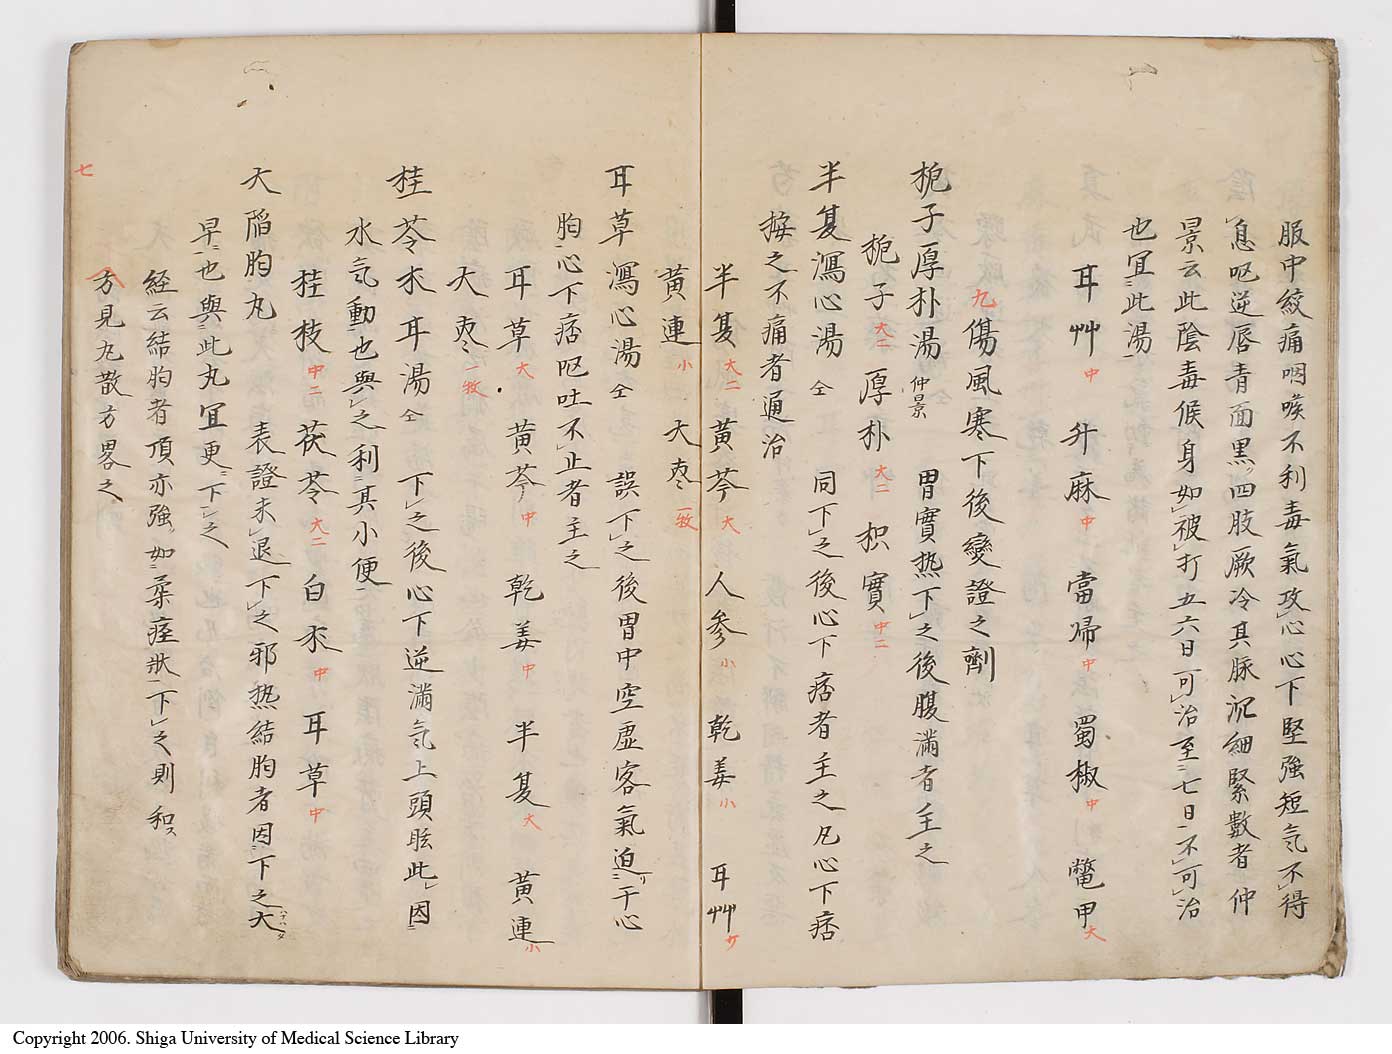 服中絞痛咽喉不利毒氣攻心心下堅強短氣不得
息呕逆唇青面黑四肢厥冷其脉沉細緊數者仲
景云此陰毒候身如被打五六日可治至七日不可治
也宜此湯
耳艸中 升麻中 當帰中 蜀椒中 鼈甲大
九傷風寒下後變證之劑
梔子厚朴湯仲景 胃實热下之後腹滿者主之
梔子大二 厚朴大二 枳實中二
半夏瀉心湯仝 同下之後心下痞者主之凡心下痞
按之不痛者通治
半夏大二 黄芩大 人参小 乾姜小 耳艸サ
黄連小 大枣一枚
耳草瀉心湯仝 誤下之後胃中空虚客氣迫干心
胸心下痞呕吐不止者主之
耳草大 黄芩中 乾姜中 半夏大 黄連小
大枣一枚
桂苓朮耳湯仝 下之後心下逆滿氣上頭眩此因
水氣動也與之利其小便
桂枝中二 茯苓大二 白朮中 耳草中
大陥胸丸 表證未退下之邪热結胸者因下之大
早也與此丸宜更下之
経云結胸者項亦強如柔痓狀下之則和ス
方見丸散方畧之
七
Copyright 2006. Shiga University of Medical Science Library